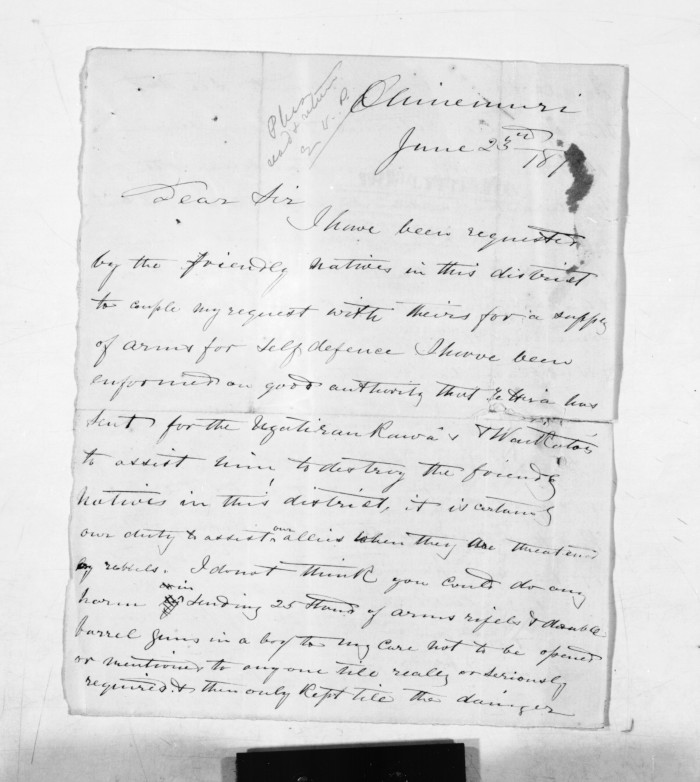 Please
read & return
J. D. P.
Ohinemuri
June 23rd 187
Dear Sir
I have been requested
by the friendly natives in this district
to couple my request with theirs for a supply
of arms for self defence I have been
enformed on good authority that Te Hira has
sent for the Ngatiraukawa's & Waikato's
to assist him to destroy the friendly
natives in this district, it is certainly
our duty to assist our allies when they are threatend
by rebels. I do not think you could do any
harm in sending 25 stand of arms rifels & double
barrel guns in a box to my care not to be opened
or mentioned to anyone till really or seriously
required & then only kept till the dainger